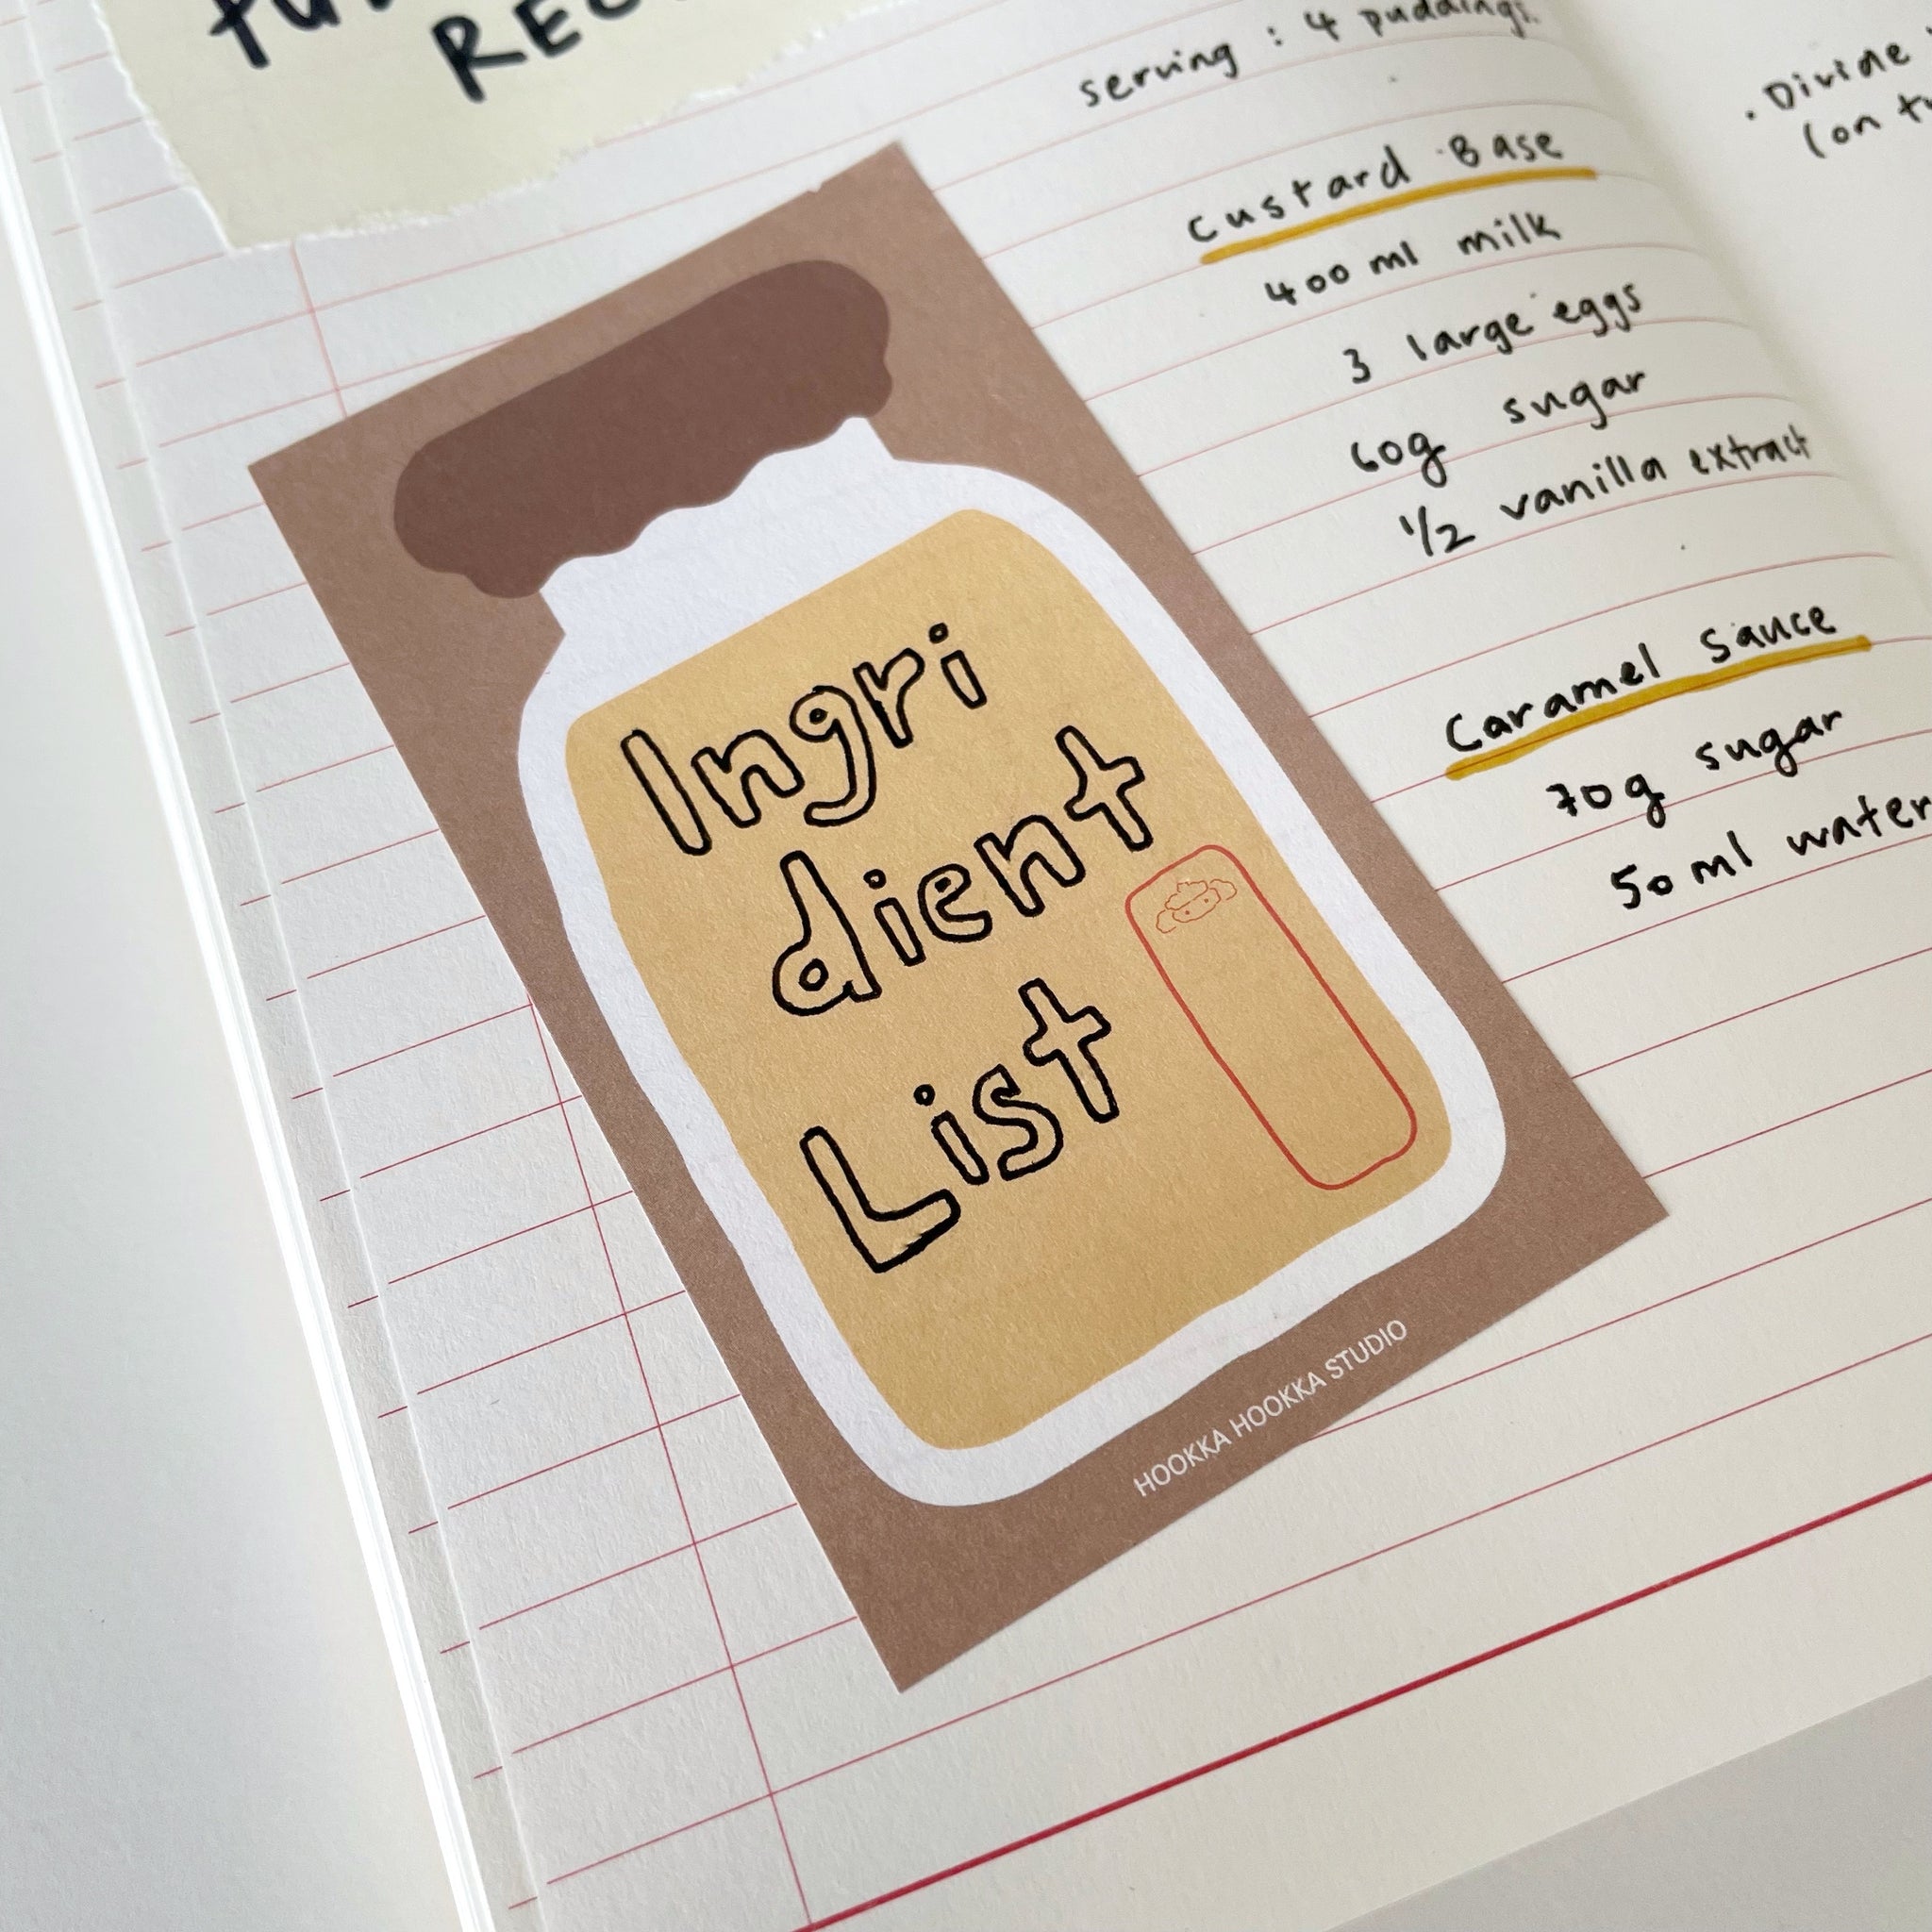 serving : 4 puddings.
Custard Base
400 ml milk
3 large eggs
60g sugar
1/2 vanilla extract
Caramel Sauce
70g sugar
50 ml water
Ingri
dient
List
HOOKKA HOOKKA STUDIO
. Divide
(on